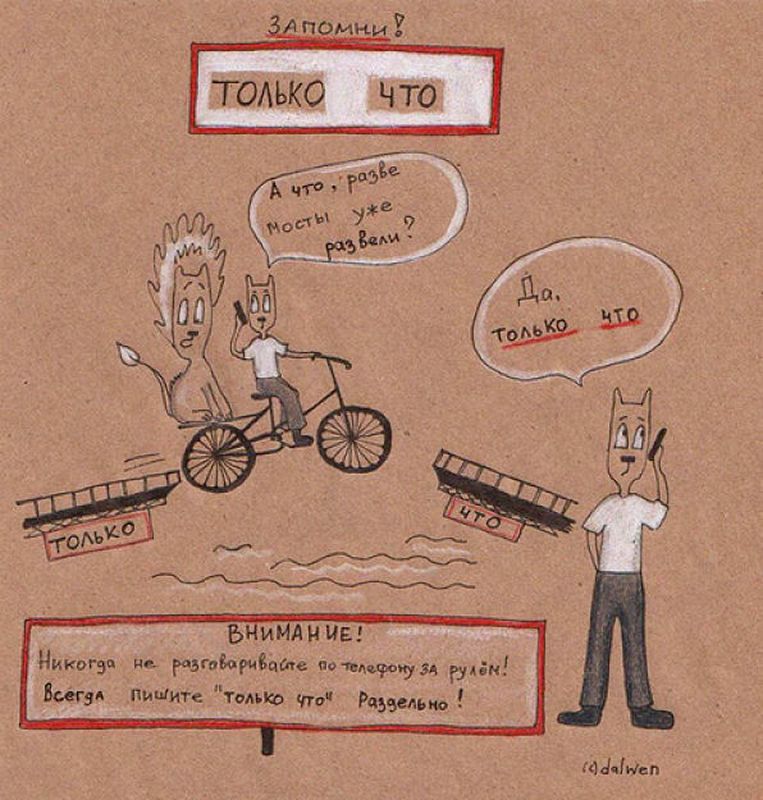 Запомни!
ТОЛЬКО ЧТО
А что, разве
мосты уже
развели?
Да,
только что
ТОЛЬКО
ЧТО
ВНИМАНИЕ!
Никогда не разговаривайте по телефону за рулём!
Всегда пишите "только что" Раздельно!
(c)dalwen